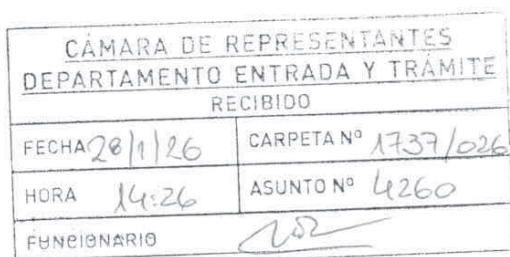 CÁMARA DE REPRESENTANTES
DEPARTAMENTO ENTRADA Y TRÁMITE
RECIBIDO
FECHA 28/1/26 CARPETA Nº 1737/026
HORA 14:26 ASUNTO Nº 4260
FUNCIONARIO